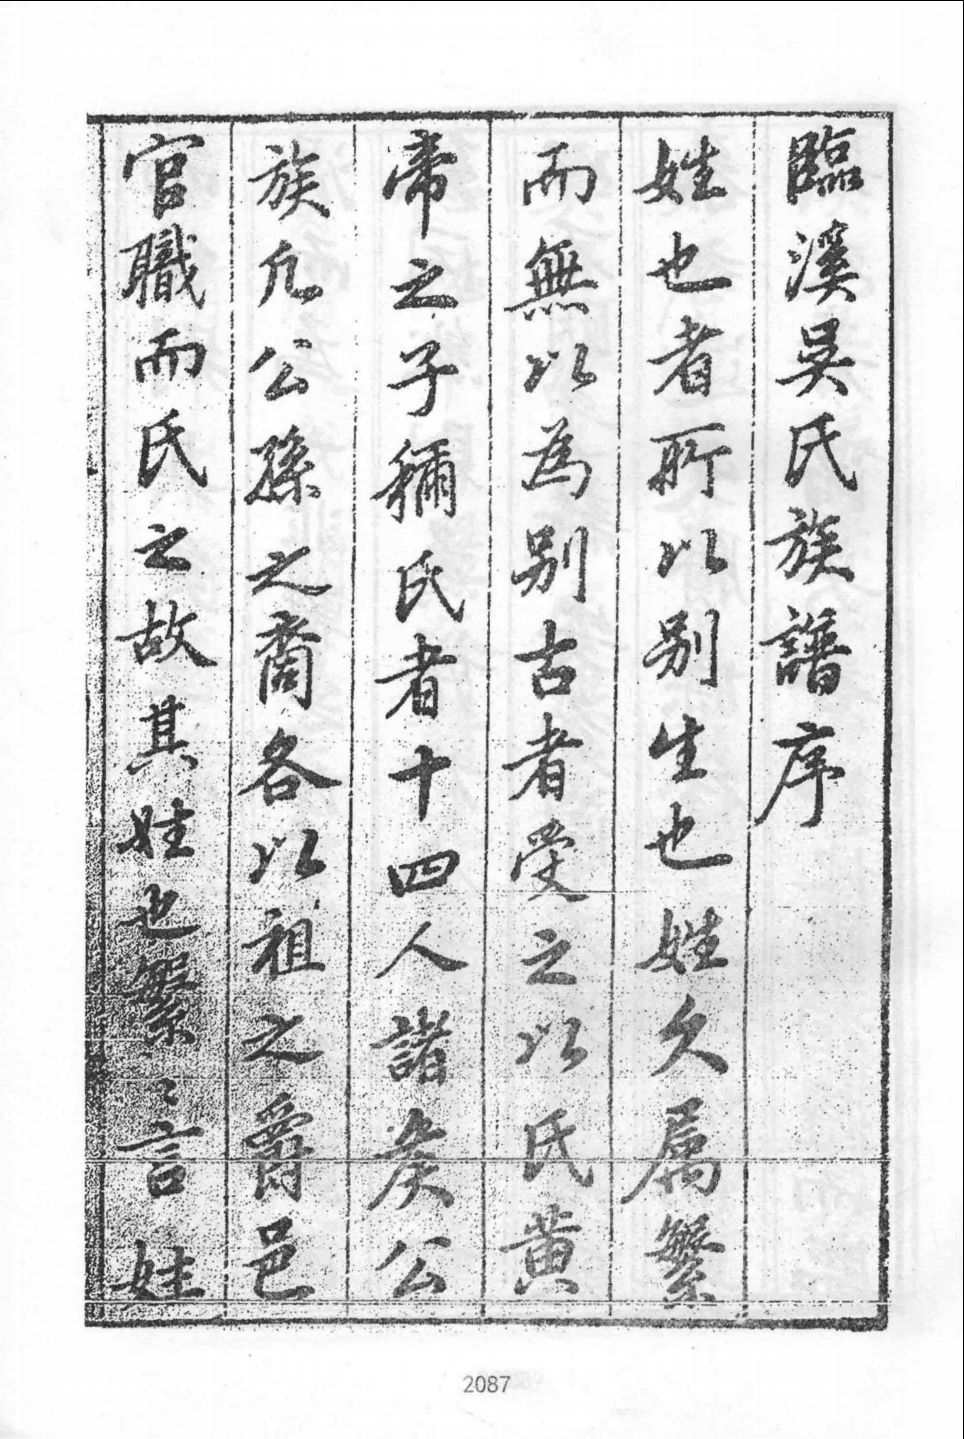 臨溪吳氏族譜序
姓也者所以别生也姓久属繁
而無以為别古者受之以氏黄
帝之子稱氏者十四人諸矦公
族凡公孫之裔各以祖之爵邑
官職而氏之故其姓也繁〻言姓
2087